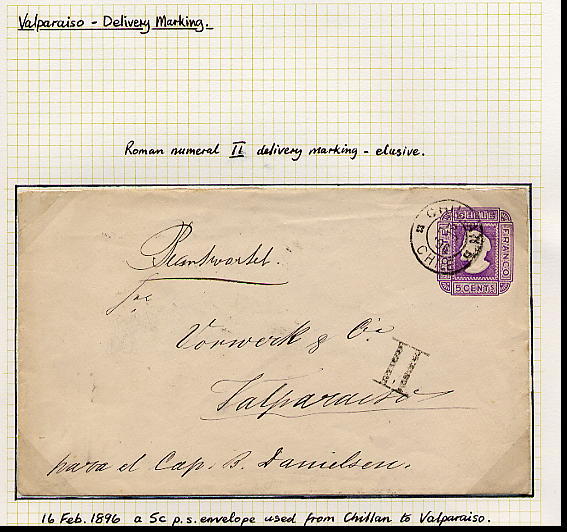 Valparaiso - Delivery Marking.
Roman numeral II delivery marking - elusive.
CHI
FRANCO
5 CENTS
Beantwortet.
Vorwerk & Co.
II
Valparaiso
para el Cap. B. Danielsen.
16 Feb. 1896 a 5c p.s. envelope used from Chillan to Valparaiso.